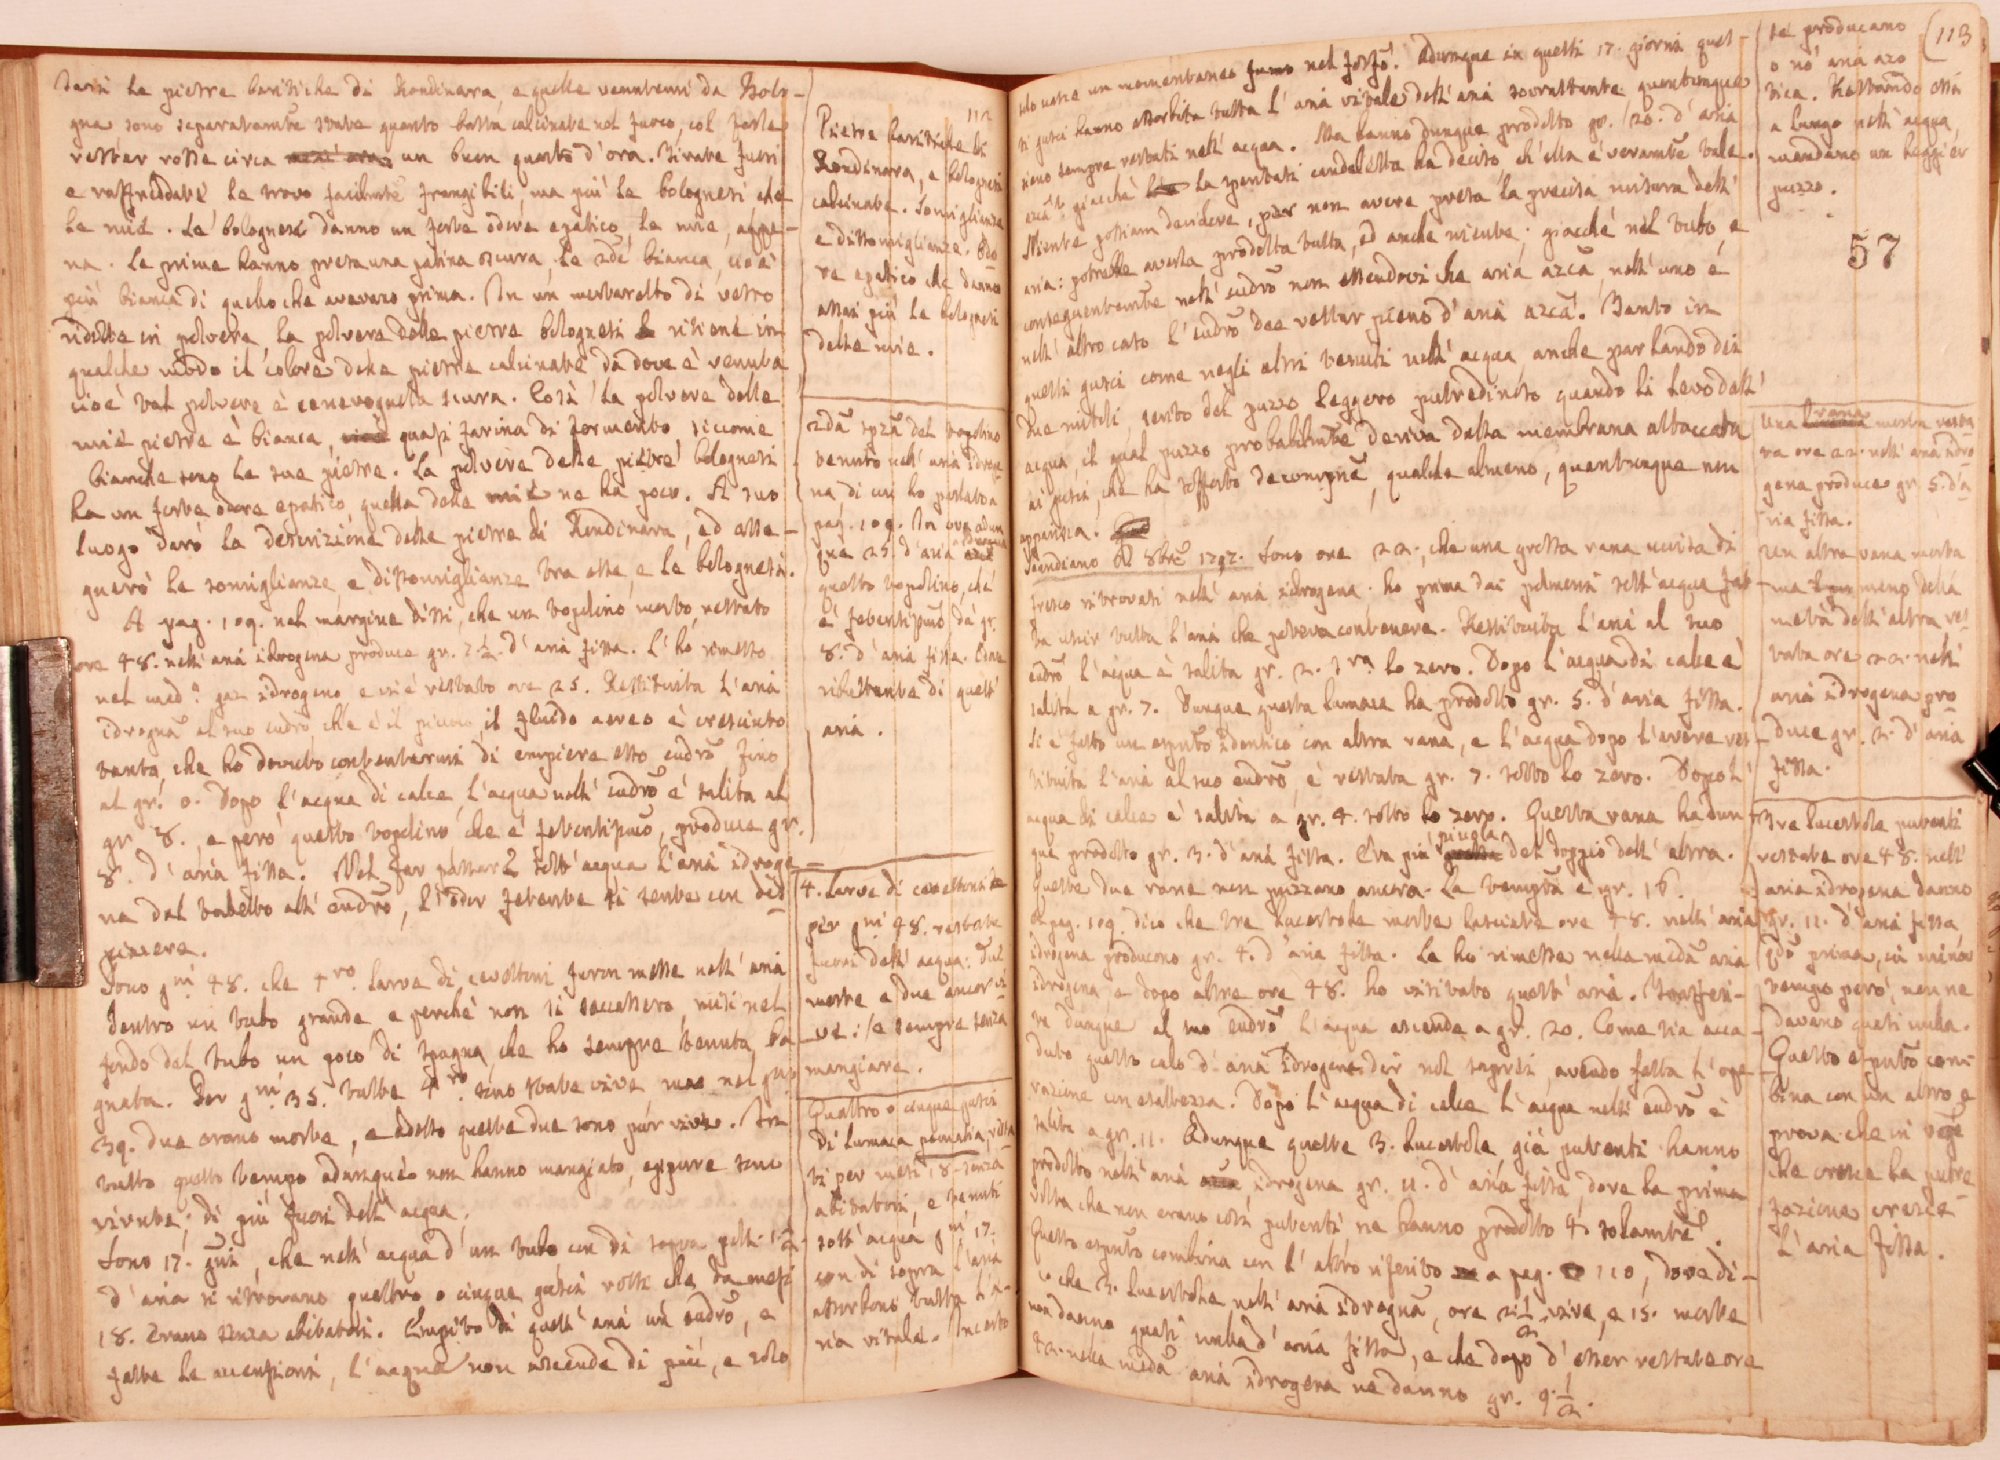 112
darsi le pietre baritiche di Rondinara, e quelle venutemi da Bolo-
gna sono separatamte state quanto basta calcinate nel fuoco, col farle
restar rosse circa un buon quarto d'ora. Tirate fuori
e raffreddate le trovo facilmte frangibili, ma più le bolognesi che
le mie. Le bolognesi danno un forte odore epatico, le mie, appe-
na. Le prime hanno presa una patina oscura, le 2de bianca, cioè
più bianca di quello che avevano prima. In un mortaretto di vetro
ridotte in polvere la polvere delle pietre bolognesi ritiene in
qualche modo il colore delle pietre calcinate da dove è venuta
cioè tal polvere è cenerognola scura. Così la polvere delle
mie pietre è bianca, quasi farina di formento, siccome
bianche sono le sue pietre. La polvere delle pietre bolognesi
ha un forte odore epatico, quella delle mie ne ha poco. A suo
luogo darò la descrizione delle pietre di Rondinara, ed asse-
gnerò le somiglianze, e dissomiglianze tra esse, e le bolognesi.
A pag. 109. nel margine dissi, che un topolino morto, restato
ore 48. nell' aria idrogena produce gr. 2 1/2. d' aria fissa. L' ho rimesso
nel medo. gaz idrogeno, e vi è restato ore 25. Restituita l' aria
idrogena al suo eudro, che è il piccolo, il fluido aereo è cresciuto
tanto, che ho dovuto contentarmi di empiere esso eudro fino
al gr. 0. Dopo l' acqua di calce, l' acqua nell' eudro è salita al
gr. 8. e però questo topolino che è fetentissimo, produce gr.
8. d' aria fissa. Nel far passare sott' acqua l' aria idroge-
na dal tubetto all' eudro, l' odor fetente si sente con dis-
piacere.
Sono gni 48. che 4ro. larve di cevettoni furon messe nell' aria
dentro un tubo grande e perchè non si seccassero, misi nel
fondo del tubo un poco di spugna che ho sempre tenuta ba-
gnata. Per gni 35. tutte 4ro. sono state vive, ma nel gno
39. due erano morte, e adesso queste due sono pur vive. In
tutto questo tempo adunque non hanno mangiato, eppure sono
vivute, di più fuori dell' acqua.
Sono 17. gni, che nell' acqua d' un tubo con di sopra poll. 1 1/2.
d' aria si ritrovano quattro o cinque gusci rotti che da mesi
18. erano senza abitatori. Empito di quell' aria un eudro, e
fatte le accensioni, l' acqua non ascende di più, e solo
Pietre baritiche di
Rondinara, e bolognesi
calcinate. Somiglianze
e dissomiglianze. Odo-
re epatico che danno
assai più le bolognesi
delle mie.
2da spza del topolino
tenuto nell' aria idroge-
na di cui ho parlato a
pag. 109. In ore adun-
que 25. d' aria idrogena
questo topolino, che
è fetentissimo dà gr.
8. d' aria fissa. Odore
ributtante di quest'
aria.
4. Larve di cevettoni
per gni 48. restate
fuori dell' acqua: due
morte e due ancor vi-
ve: e sempre senza
mangiare.
Quattro o cinque gusci
di lumaca pomatia, vuo-
ti per mesi 18. senza
abitatori, e tenuti
sott' acqua gni 17.
con di sopra l' aria
assorbono tutta l' a-
ria vitale. Incerto
(113
solo nasce un momentaneo fumo nel fosfo. Adunque in questi 17. giorni que-
sti gusci hanno assorbita tutta l' aria vitale dell' aria sovrastante quantunque
sieno sempre restati nell' acqua. Ma hanno dunque prodotto gr. 20. d' aria
azca? giacchè la spentasi candeletta ha deciso, ch' ella è veramte tale.
Niente possiam decidere, per non avere presa la precisa misura dell'
aria: potrebbe averla prodotta tutta, ed anche niente; giacchè nel tubo, e
conseguentemte nell' eudro non essendovi che aria azca, nell' uno e
nell' altro caso l' eudro dee restar pieno d' aria azca. Tanto in
questi gusci come negli altri tenuti nell' acqua, anche parlando dei
due nicoli, sento del puzzo leggero putredinoso quando li levo dall'
acqua, il qual puzzo probabilmte deriva dalla membrana attaccata
ai gusci, che ha sofferto decompne, qualche almeno, quantunque non
apparisca.
Scandiano 8bre 1797. Sono ore 22., che una grossa rana uccisa di
fresco ritrovasi nell' aria idrogena. Ho prima dai polmoni sott' acqua fat-
ta uscir tutta l' aria che poteva contenere. Restituita l' aria al suo
eudro l' acqua è salita gr. 2. sra lo zero. Dopo l' acqua di calce è
salita a gr. 7. Dunque questa lumaca ha prodotto gr. 5. d' aria fissa.
Si è fatto un esptto identico con altra rana, e l' acqua dopo l' avere res-
tituita l' aria al suo eudro, è restata gr. 7. sotto lo zero. Dopo l'
acqua di calce è salita a gr. 4. sotto lo zero. Questa rana ha dun-
que prodotto gr. 3. d' aria fissa. Era più piccola del doppio dell' altra.
Queste due rane non puzzano ancora. La temptra è gr. 16.
A pag. 109. dico che tre lucertole morte lasciate ore 48. nell' aria
idrogena producono gr. 4. d' aria fissa. Le ho rimesse nella meda aria
idrogena e dopo altre ore 48. ho visitato quest' aria. Trasferi-
ta dunque al suo eudro l' acqua ascende a gr. 20. Come sia acca-
duto questo calo d' aria idrogena dir nol saprei, avendo fatta l' ope-
razione con esattezza. Dopo l' acqua di calce l' acqua nell' eudro è
salita a gr. 11. Adunque queste 3. lucertole già putenti hanno
prodotto nell' aria idrogena gr. 11. d' aria fissa, dove la prima
volta che non erano così putenti, ne hanno prodotto 4. solamte.
Questo esptto combina con l' altro riferito a pag. 110, dove di-
co che 3. lucertole nell' aria idrogena, ore 2 1/2 vive, e 15. morte
non danno quasi nulla d' aria fissa, e che dopo d' esser restate ore
42. nella meda aria idrogena ne danno gr. 9 1/2.
se producano
o nò aria azo
tica. Restando essi
a lungo nell' acqua,
mandano un leggier
puzzo.
57
Una rana morta resta-
ta ore 22. nell' aria idro-
gena produce gr. 5. d' a-
ria fissa.
Un altra rana morta
ma meno della
metà dell' altra res-
tata ore 22. nell'
aria idrogena pro
duce gr. 3. d' aria
fissa.
Tre lucertole putenti
restate ore 48. nell'
aria idrogena danno
gr. 11. d' aria fissa,
Qdo prima, in minor
tempo però, non ne
davano quasi nulla.
Questo esptto com-
bina con un altro e
prova che in
che cresce la putre-
fazione cresce
l' aria fissa.